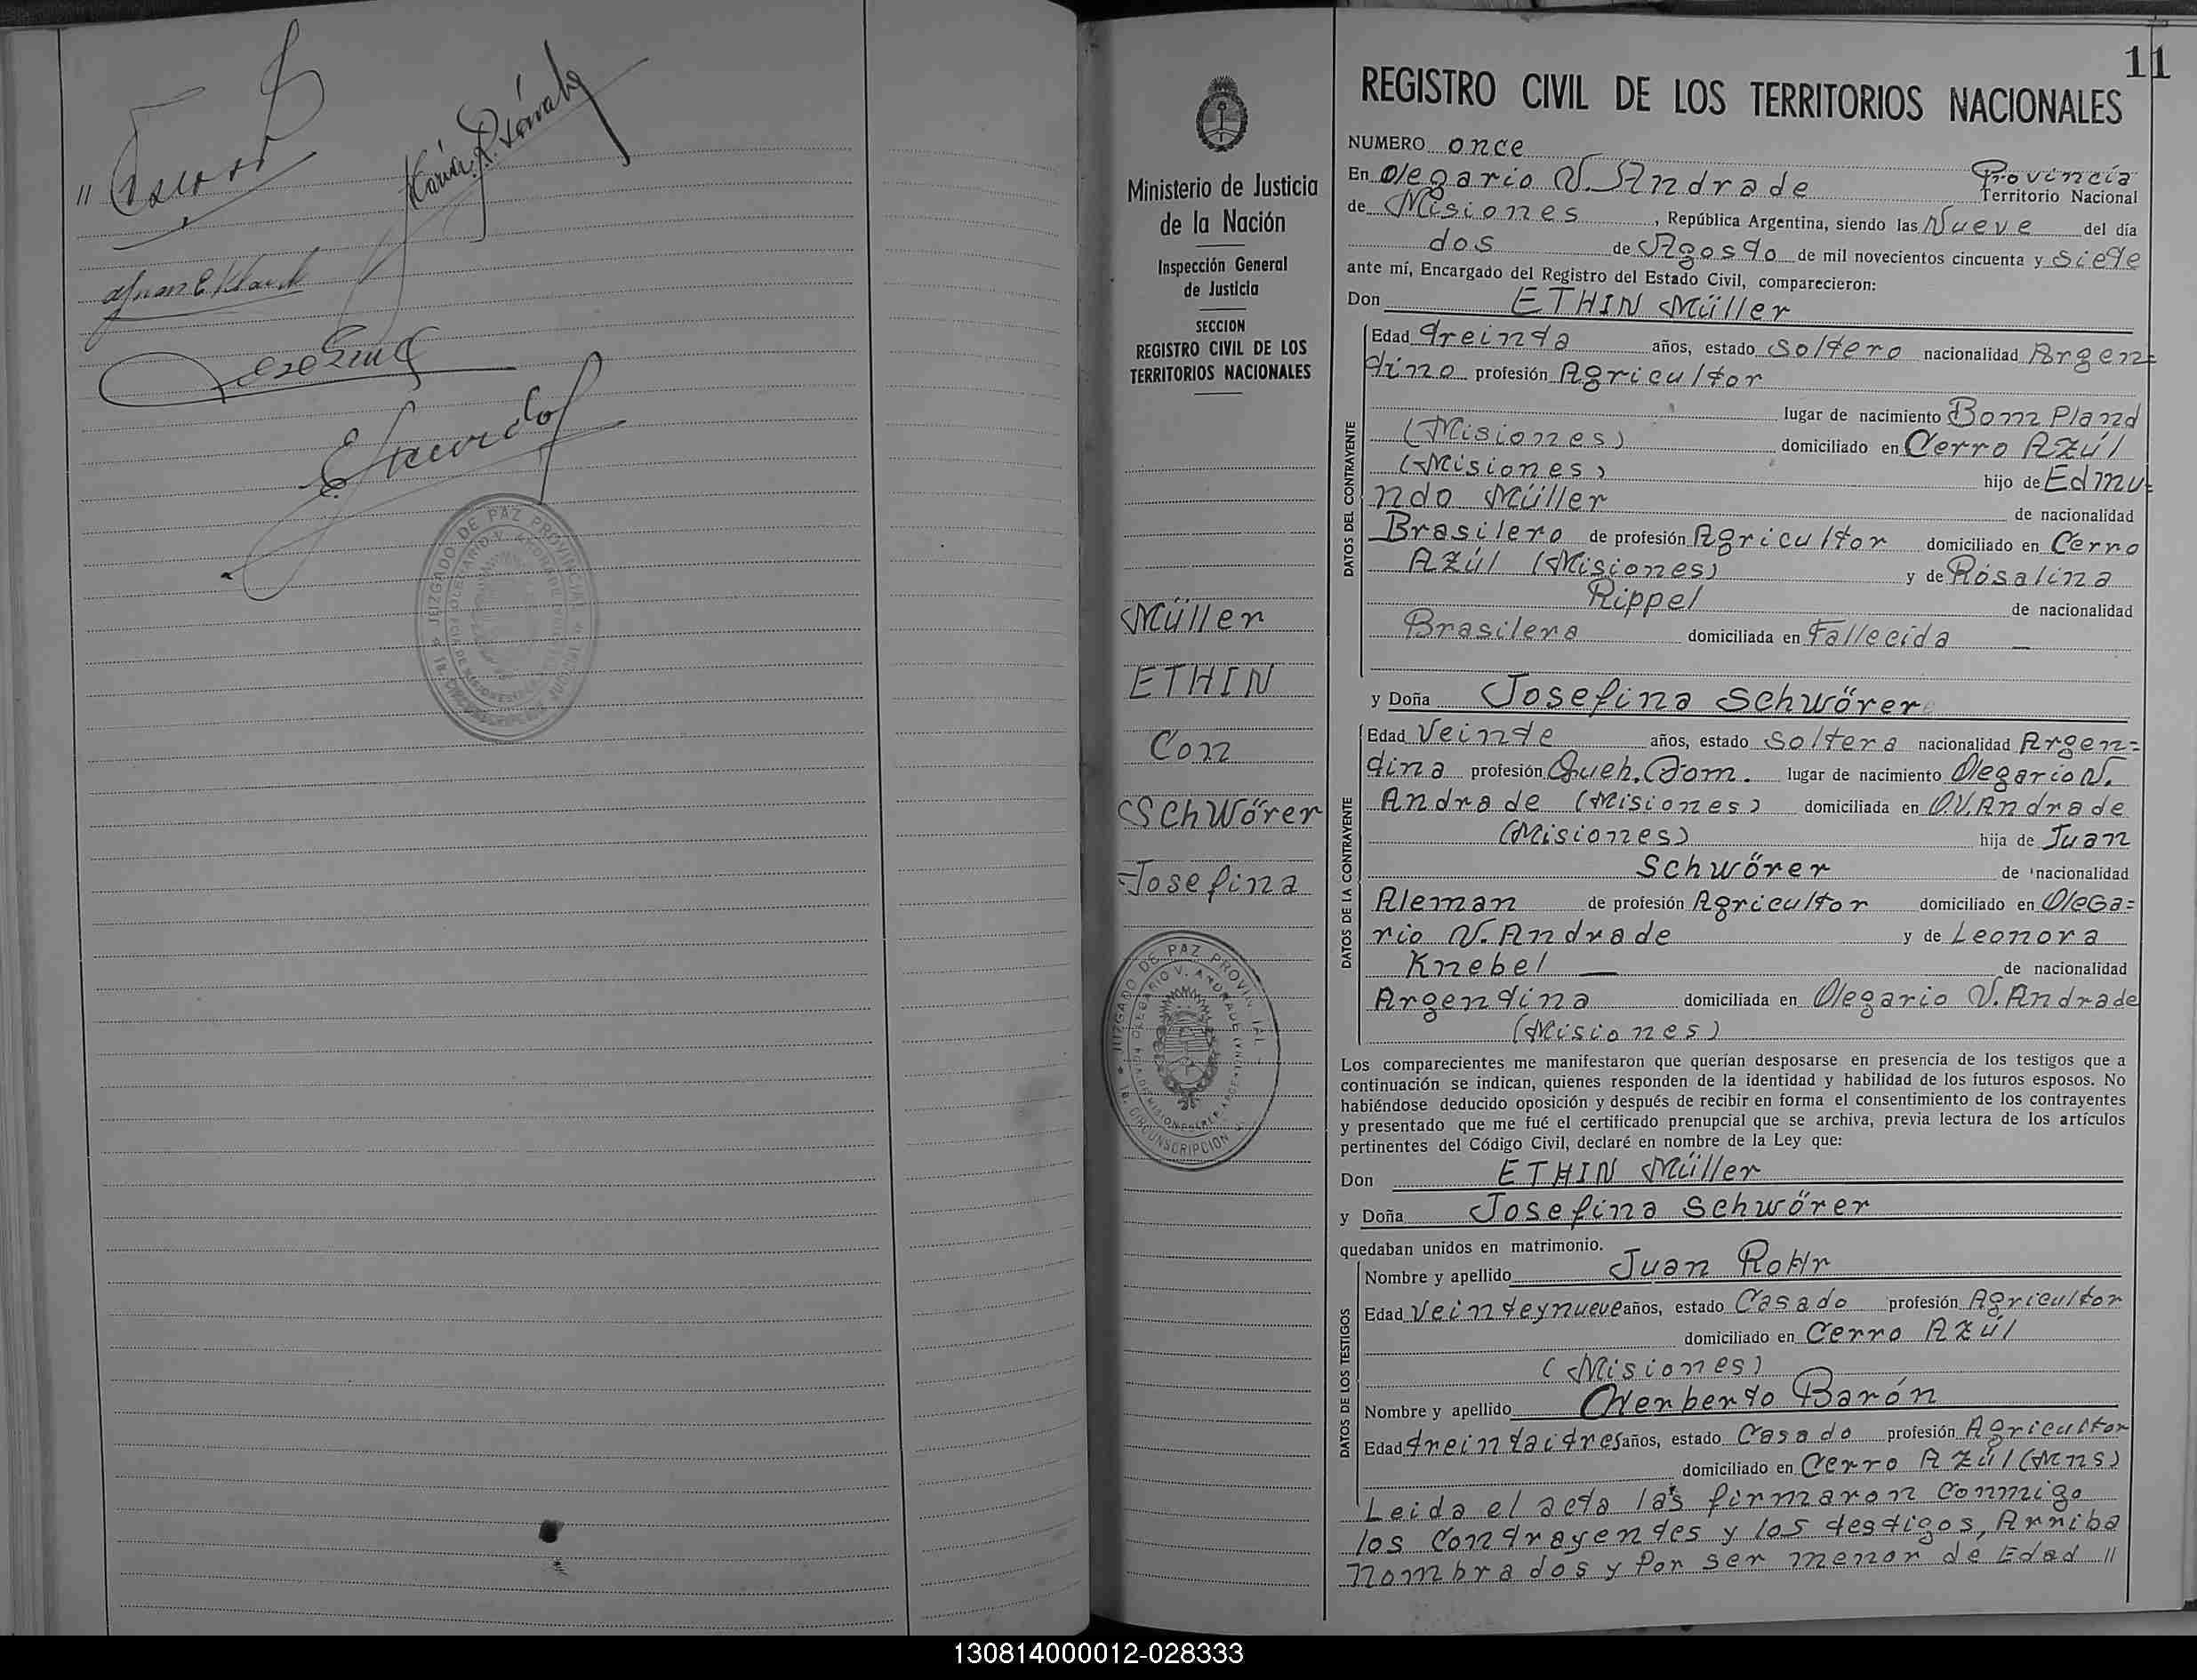 11
REGISTRO CIVIL DE LOS TERRITORIOS NACIONALES
Ministerio de Justicia
de la Nación
Inspección General
de Justicia
SECCION
REGISTRO CIVIL DE LOS
TERRITORIOS NACIONALES
Müller
ETHIN
Con
Schwörer
Josefina
JUZGADO DE PAZ PROVINCIAL
NUMERO once
En Olegario V. Andrade Provincia
Territorio Nacional
de Misiones, República Argentina, siendo las Nueve del día
dos de Agosto de mil novecientos cincuenta y siete
ante mí, Encargado del Registro del Estado Civil, comparecieron:
Don ETHIN Müller
DATOS DEL CONTRAYENTE
Edad treinta años, estado Soltero nacionalidad Argen=
tino profesión Agricultor
lugar de nacimiento Bom Pland
(Misiones) domiciliado en Cerro Azúl
(Misiones) hijo de Edmu=
ndo Müller de nacionalidad
Brasilero de profesión Agricultor domiciliado en Cerro
Azúl (Misiones) y de Rosalina
Rippel de nacionalidad
Brasilera domiciliada en Fallecida —
y Doña Josefina Schwörer
DATOS DE LA CONTRAYENTE
Edad Veinte años, estado Soltera nacionalidad Argen=
tina profesión Queh. Dom. lugar de nacimiento Olegario V.
Andrade (Misiones) domiciliada en O.V. Andrade
(Misiones) hija de Juan
Schwörer de nacionalidad
Aleman de profesión Agricultor domiciliado en Olega=
rio V. Andrade y de Leonora
Knebel — de nacionalidad
Argentina domiciliada en Olegario V. Andrade
(Misiones)
Los comparecientes me manifestaron que querían desposarse en presencia de los testigos que a
continuación se indican, quienes responden de la identidad y habilidad de los futuros esposos. No
habiéndose deducido oposición y después de recibir en forma el consentimiento de los contrayentes
y presentado que me fué el certificado prenupcial que se archiva, previa lectura de los artículos
pertinentes del Código Civil, declaré en nombre de la Ley que:
Don ETHIN Müller
y Doña Josefina Schwörer
quedaban unidos en matrimonio.
DATOS DE LOS TESTIGOS
Nombre y apellido Juan RoHr
Edad Veinteynueve años, estado Casado profesión Agricultor
domiciliado en Cerro Azúl
(Misiones)
Nombre y apellido Herberto Barón
Edad treintaitres años, estado Casado profesión Agricultor
domiciliado en Cerro Azúl (Mns)
Leida el acta las firmaron conmigo
los Contrayentes y los testigos, Arriba
nombrados y Por ser menor de Edad //
130814000012-028333